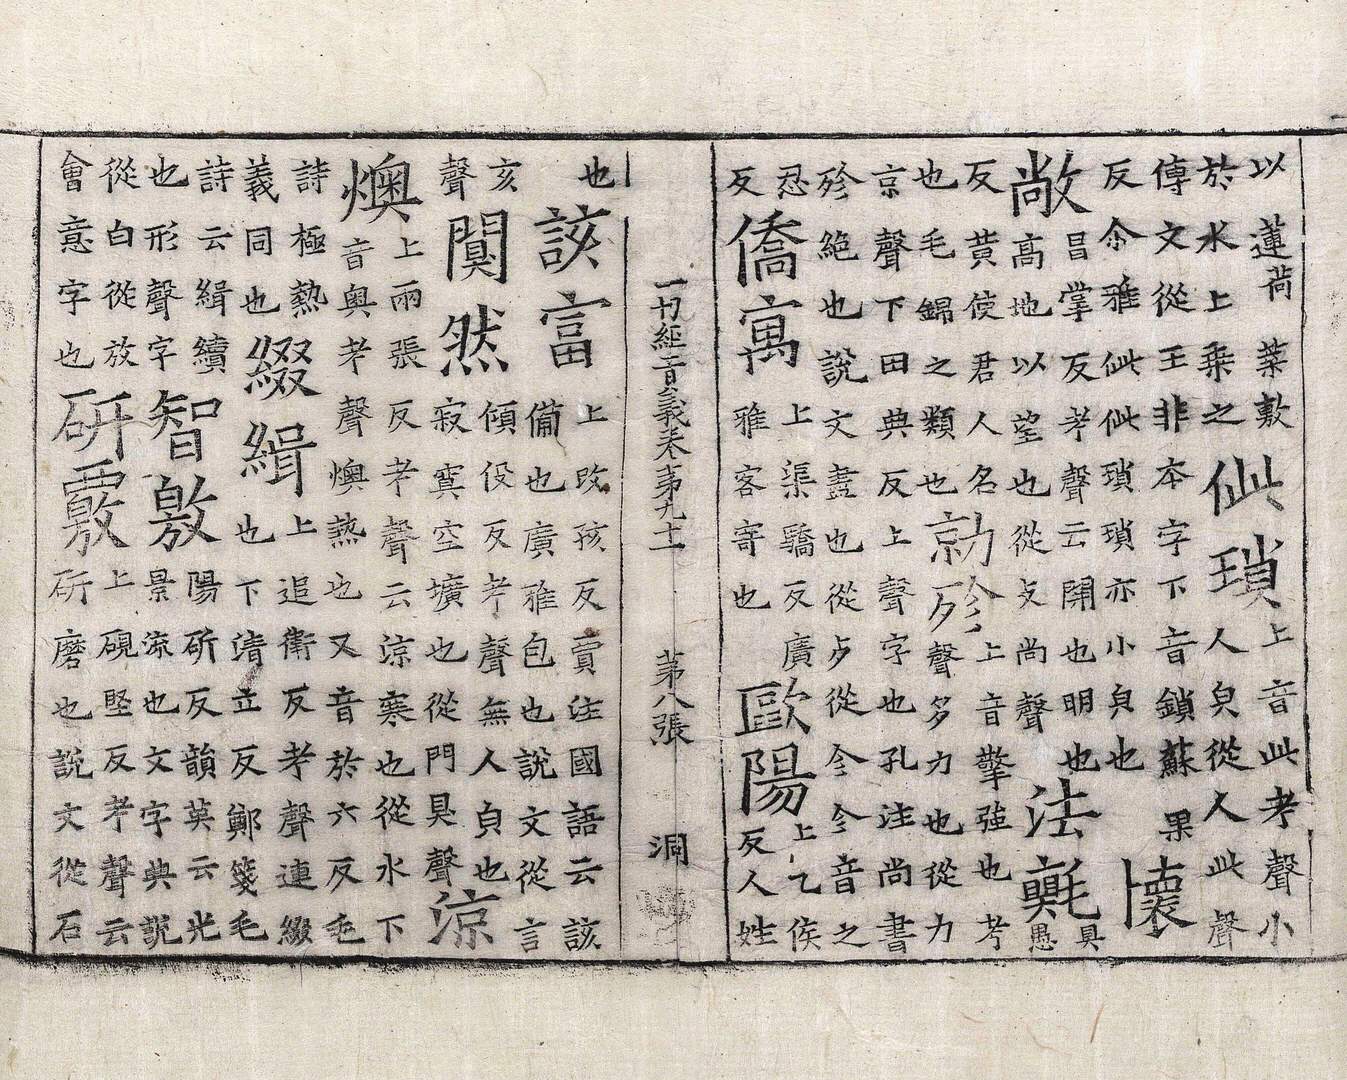 以蓮荷葉敷於水上乘之仳瑣上音此考聲小人皃從人此聲
傳文從王非本字下音鎖蘇果反尒雅仳仳瑣瑣亦小皃也懷
敞昌掌反考聲云開也明也高地以望也從攴尚聲法氍具愚
反黃使君人名也毛錦之類也勍殄上音擎強也考聲多力也從力
京聲下田典反上聲字也孔注尚書殄絕也說文盡也從歺從㐱㐱音之
忍反僑寓上渠驕反廣雅客寄也歐陽上乙侯反人姓
一切經音義卷第九十一 第八張 洞
也該富上改孩反賈注國語云該備也廣雅包也說文從言
亥聲闃然傾役反考聲無人皃也寂寞空壙也從門狊聲涼
燠上兩張反考聲云涼寒也從水下音奧考聲燠熱也又音於六反毛
詩極熱義同也綴緝上追衛反考聲連綴也下清立反鄭箋毛
詩云緝續也形聲字智敫陽斫反韻英云光景流也文字典說
從白從放會意字也研覈上硯堅反考聲云研磨也說文從石